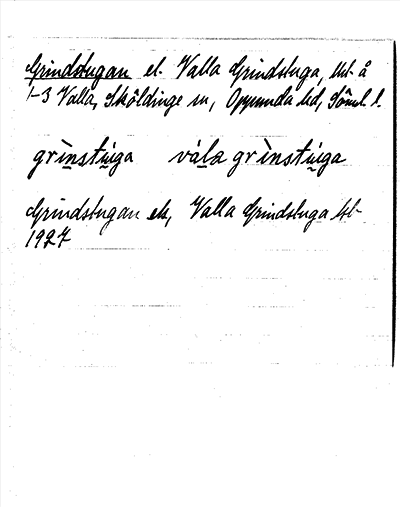 Grindstugan el. Valla Grindstuga, lht å
1-3 Valla, Sköldinge sn, Oppunda hd, Söml. l.
grìnstú̱ga vàla grìnstú̱ga
Grindstugan el., Valla Grindstuga
1927